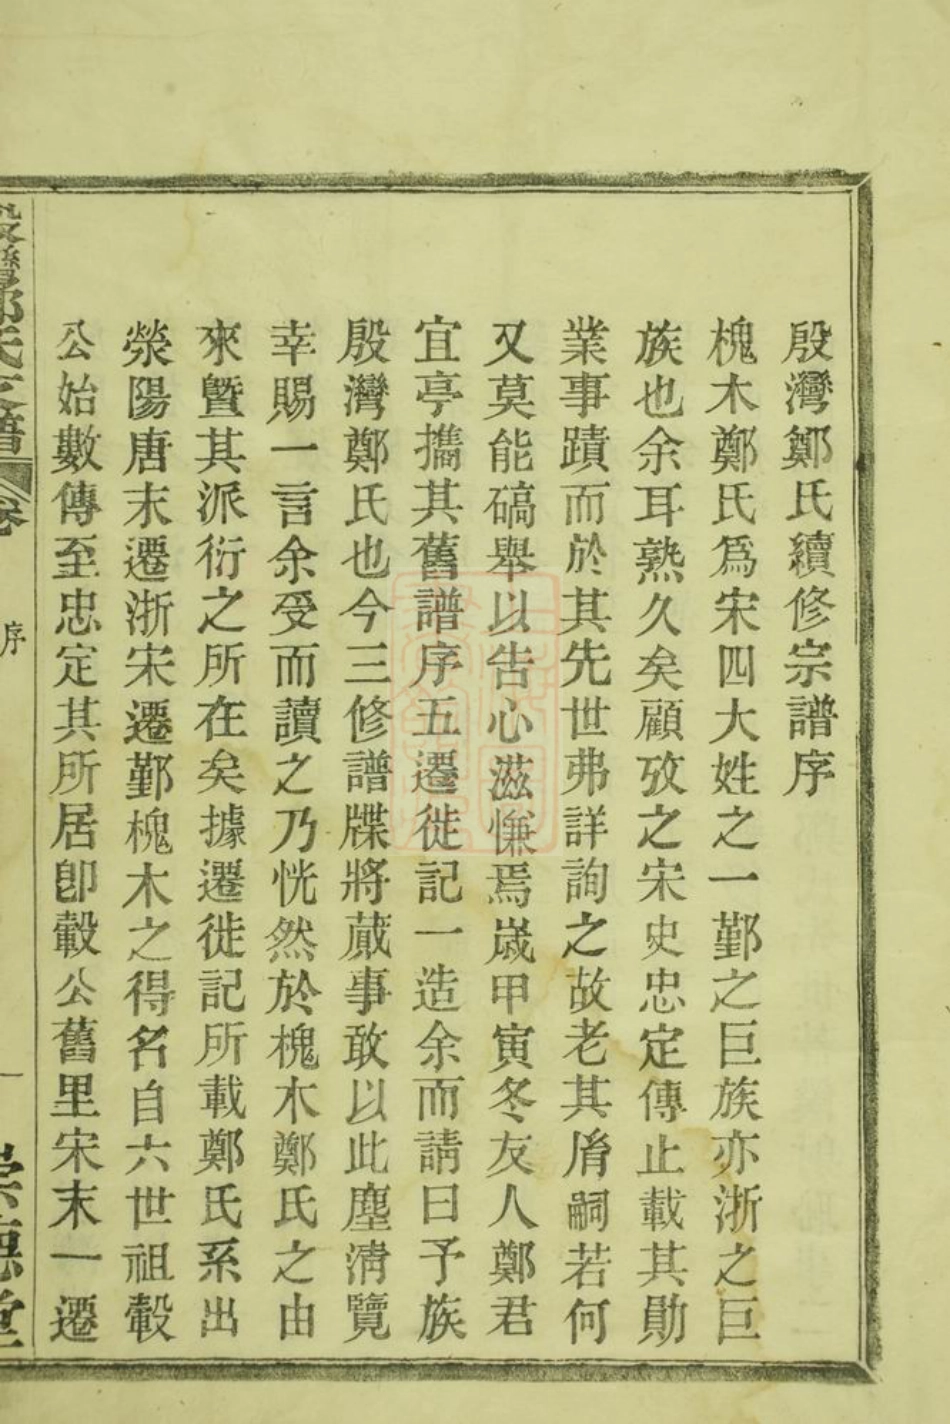 殷灣鄭氏續修宗譜序
槐木鄭氏爲宋四大姓之一鄞之巨族亦浙之巨
族也余耳熟久矣顧攷之宋史忠定傳止載其勛
業事蹟而於其先世弗詳詢之故老其脩嗣若何
又莫能碻舉以吿心滋慊焉嵗甲寅冬友人鄭君
宜亭攜其舊譜序五遷徙記一造余而請曰予族
殷灣鄭氏也今三修譜牒將蕆事敢以此塵淸覽
幸賜一言余受而讀之乃恍然於槐木鄭氏之由
來曁其派衍之所在矣據遷徙記所載鄭氏系出
滎陽唐末遷浙宋遷鄞槐木之得名自六世祖轂
公始數傳至忠定其所居卽轂公舊里宋末一遷
殷灣鄭氏支譜
卷
序
一
崇德堂